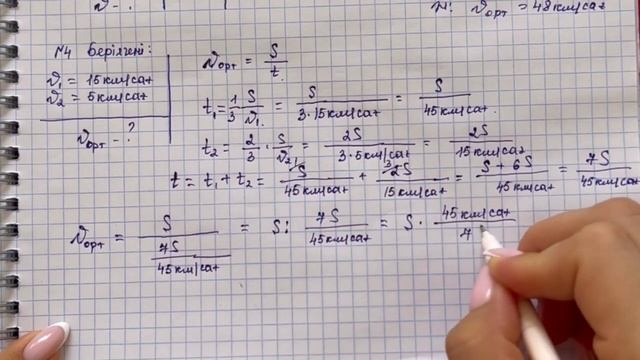 ϑ - ?
N: ϑорт = 48 км/сағ
N4 Берілгені:
ϑ₁ = 15 км/сағ
ϑ₂ = 5 км/сағ
ϑорт - ?
ϑорт = S/t
t₁ = 1/3 S/ϑ₁ = S/(3·15 км/сағ) = S/(45 км/сағ)
t₂ = 2/3 · S/ϑ₂ = 2S/(3·5 км/сағ) = 2S/(15 км/сағ)
t = t₁ + t₂ = S/(45 км/сағ) + ³2S/(15 км/сағ) = (S + 6S)/(45 км/сағ) = 7S/(45 км/сағ)
ϑорт = S/(7S/(45 км/сағ)) = S : 7S/(45 км/сағ) = S · (45 км/сағ)/7